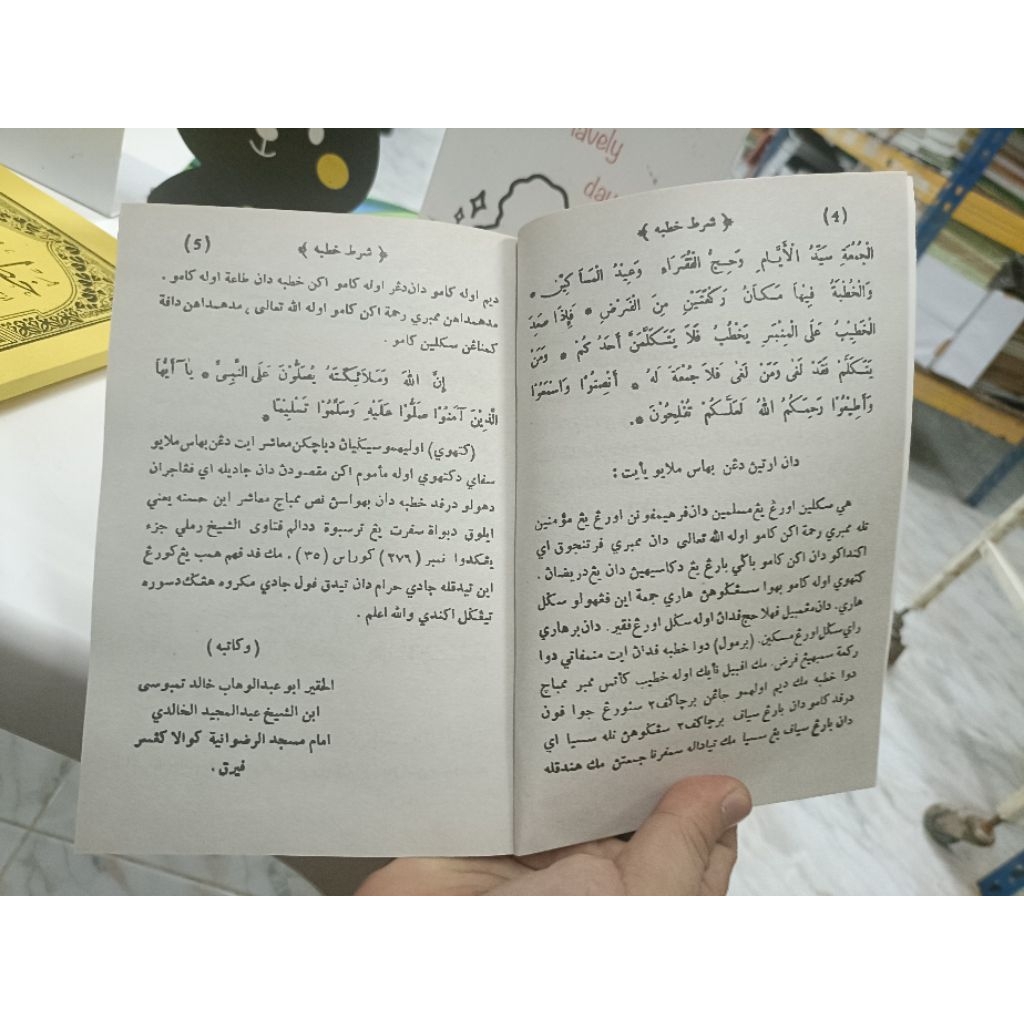 (4)
﴿ شرط خطبه ﴾
الْجُمْعَةِ سَيِّدُ الْأَيَّامِ وَحَجُّ الْفُقَرَاءِ وَعِيْدُ الْمَسَاكِيْنِ *
وَالْخُطْبَةُ فِيْهَا مَكَانُ رَكْعَتَيْنِ مِنَ الْفَرْضِ * فَإِذَا صَعِدَ
الْخَطِيْبُ عَلَى الْمِنْبَرِ يَخْطُبُ فَلَا يَتَكَلَّمَنَّ أَحَدُ كُمْ * وَمَنْ
يَتَكَلَّمْ فَقَدْ لَغَى وَمَنْ لَغَى فَلَا جُمْعَةَ لَهُ * أَنْصِتُوْا وَاسْمَعُوْا
وَأَطِيْعُوْا رَحِمَكُمُ اللهُ لَعَلَّكُمْ تُفْلِحُوْنَ *.
دان ارتين دڠن بهاس ملايو يأيت :
هي سكلين اورڠ يڠ مسلمين دان فرهيمفونن اورڠ يڠ مؤمنين
تله ممبري رحمة اكن كامو اوله الله تعالى دان ممبري فرتنجوق اي
اكنداكو دان اكن كامو باڬي بارڠ يڠ دكاسيهين دان يڠ دريضان .
كتهوي اوله كامو بهوا سڠڬوهن هاري جمعة اين فڠهولو سڬل
هاري. دان مڠمبيل فهلا حج فدان اوله سڬل اورڠ فقير. دان برهاري
راي سڬل اورڠ مسكين. (برمول) دوا خطبه فدان ايت منمفاتي دوا
ركعة سمبهيڠ فرض. مك افبيل نأيك اوله خطيب كأتس ممبر ممباچ
دوا خطبه مك ديم اولهمو جاڠن برچاكف٢ سئورڠ جوا فون
درفد كامو دان بارڠ سياف برچاكف٢ سڠڬوهن تله سسيا اي
دان بارڠ سياف يڠ سسيا مك تياداله سمفرنا جمعتن مك هندقله
(5)
﴿ شرط خطبه ﴾
ديم اوله كامو دان دڠر اوله كامو اكن خطبه دان طاعة اوله كامو .
مدهمداهن ممبري رحمة اكن كامو اوله الله تعالى , مدهمداهن دافة
كمناڠن سكلين كامو .
إِنَّ اللهَ وَمَلَائِكَتَهُ يُصَلُّوْنَ عَلَى النَّبِيِّ * يَا أَيُّهَا
الَّذِيْنَ آمَنُوْا صَلُّوْا عَلَيْهِ وَسَلِّمُوْا تَسْلِيْمًا *
(كتهوي) اوليهمو سيڬيان دباچكن معاشر ايت دڠن بهاس ملايو
سفاي دكتهوي اوله مأموم اكن مقصودن دان جاديله اي فڠاجران
دهولو درفد خطبه دان بهواسن نص ممباچ معاشر اين حسنه يعني
ايلوق دبواة سفرت يڠ ترسبوة ددالم فتاوى الشيخ رملي جزء
يڠكدوا نمبر (٢٧٦) كوراس (٣٥) . مك فد فهم همب يڠ كورڠ
اين تيدقله جادي حرام دان تيدق فول جادي مكروه هڠڬ دسوره
تيڠڬل اكندي والله اعلم .
( وكاتبه )
الحقير ابو عبدالوهاب خالد تمبوسى
ابن الشيخ عبدالمجيد الخالدي
امام مسجد الرضوانية كوالا كڠسر
فيرق .
lavely
day